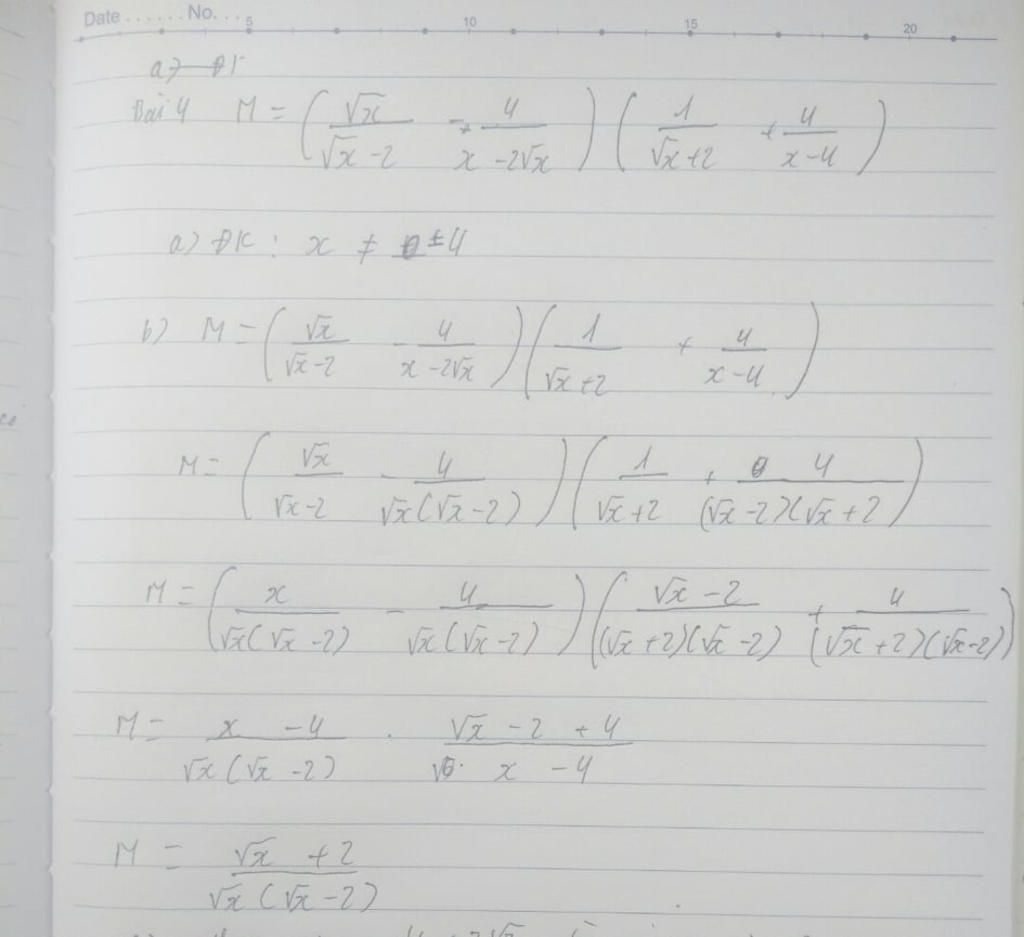 Date ...... No. ... 5 10 15 20
a) ĐK
Bài 4 M = (√x/(√x - 2) - 4/(x - 2√x)) (1/(√x + 2) + 4/(x - 4))
a) ĐK : x ≠ ± 4
b) M = (√x/(√x - 2) - 4/(x - 2√x)) (1/(√x + 2) + 4/(x - 4))
M = (√x/(√x - 2) - 4/(√x(√x - 2))) (1/(√x + 2) + 4/((√x - 2)(√x + 2)))
M = (x/(√x(√x - 2)) - 4/(√x(√x - 2))) ((√x - 2)/((√x + 2)(√x - 2)) + 4/((√x + 2)(√x - 2)))
M = (x - 4)/(√x(√x - 2)) . (√x - 2 + 4)/(x - 4)
M = (√x + 2)/(√x(√x - 2))